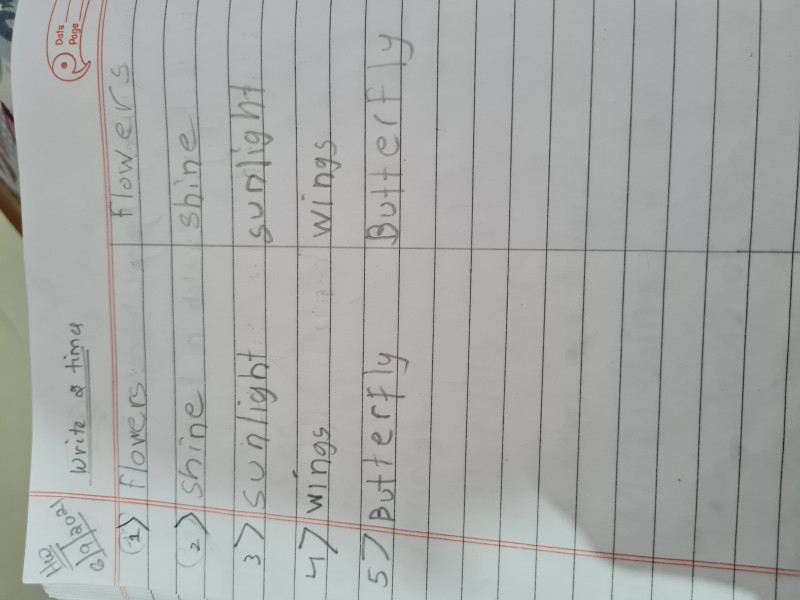 Date
Page
H.W
6/9/2021
Write 2 time
1> flowers flowers
2> shine shine
3> sunlight sunlight
4> wings wings
5> Butterfly Butterfly